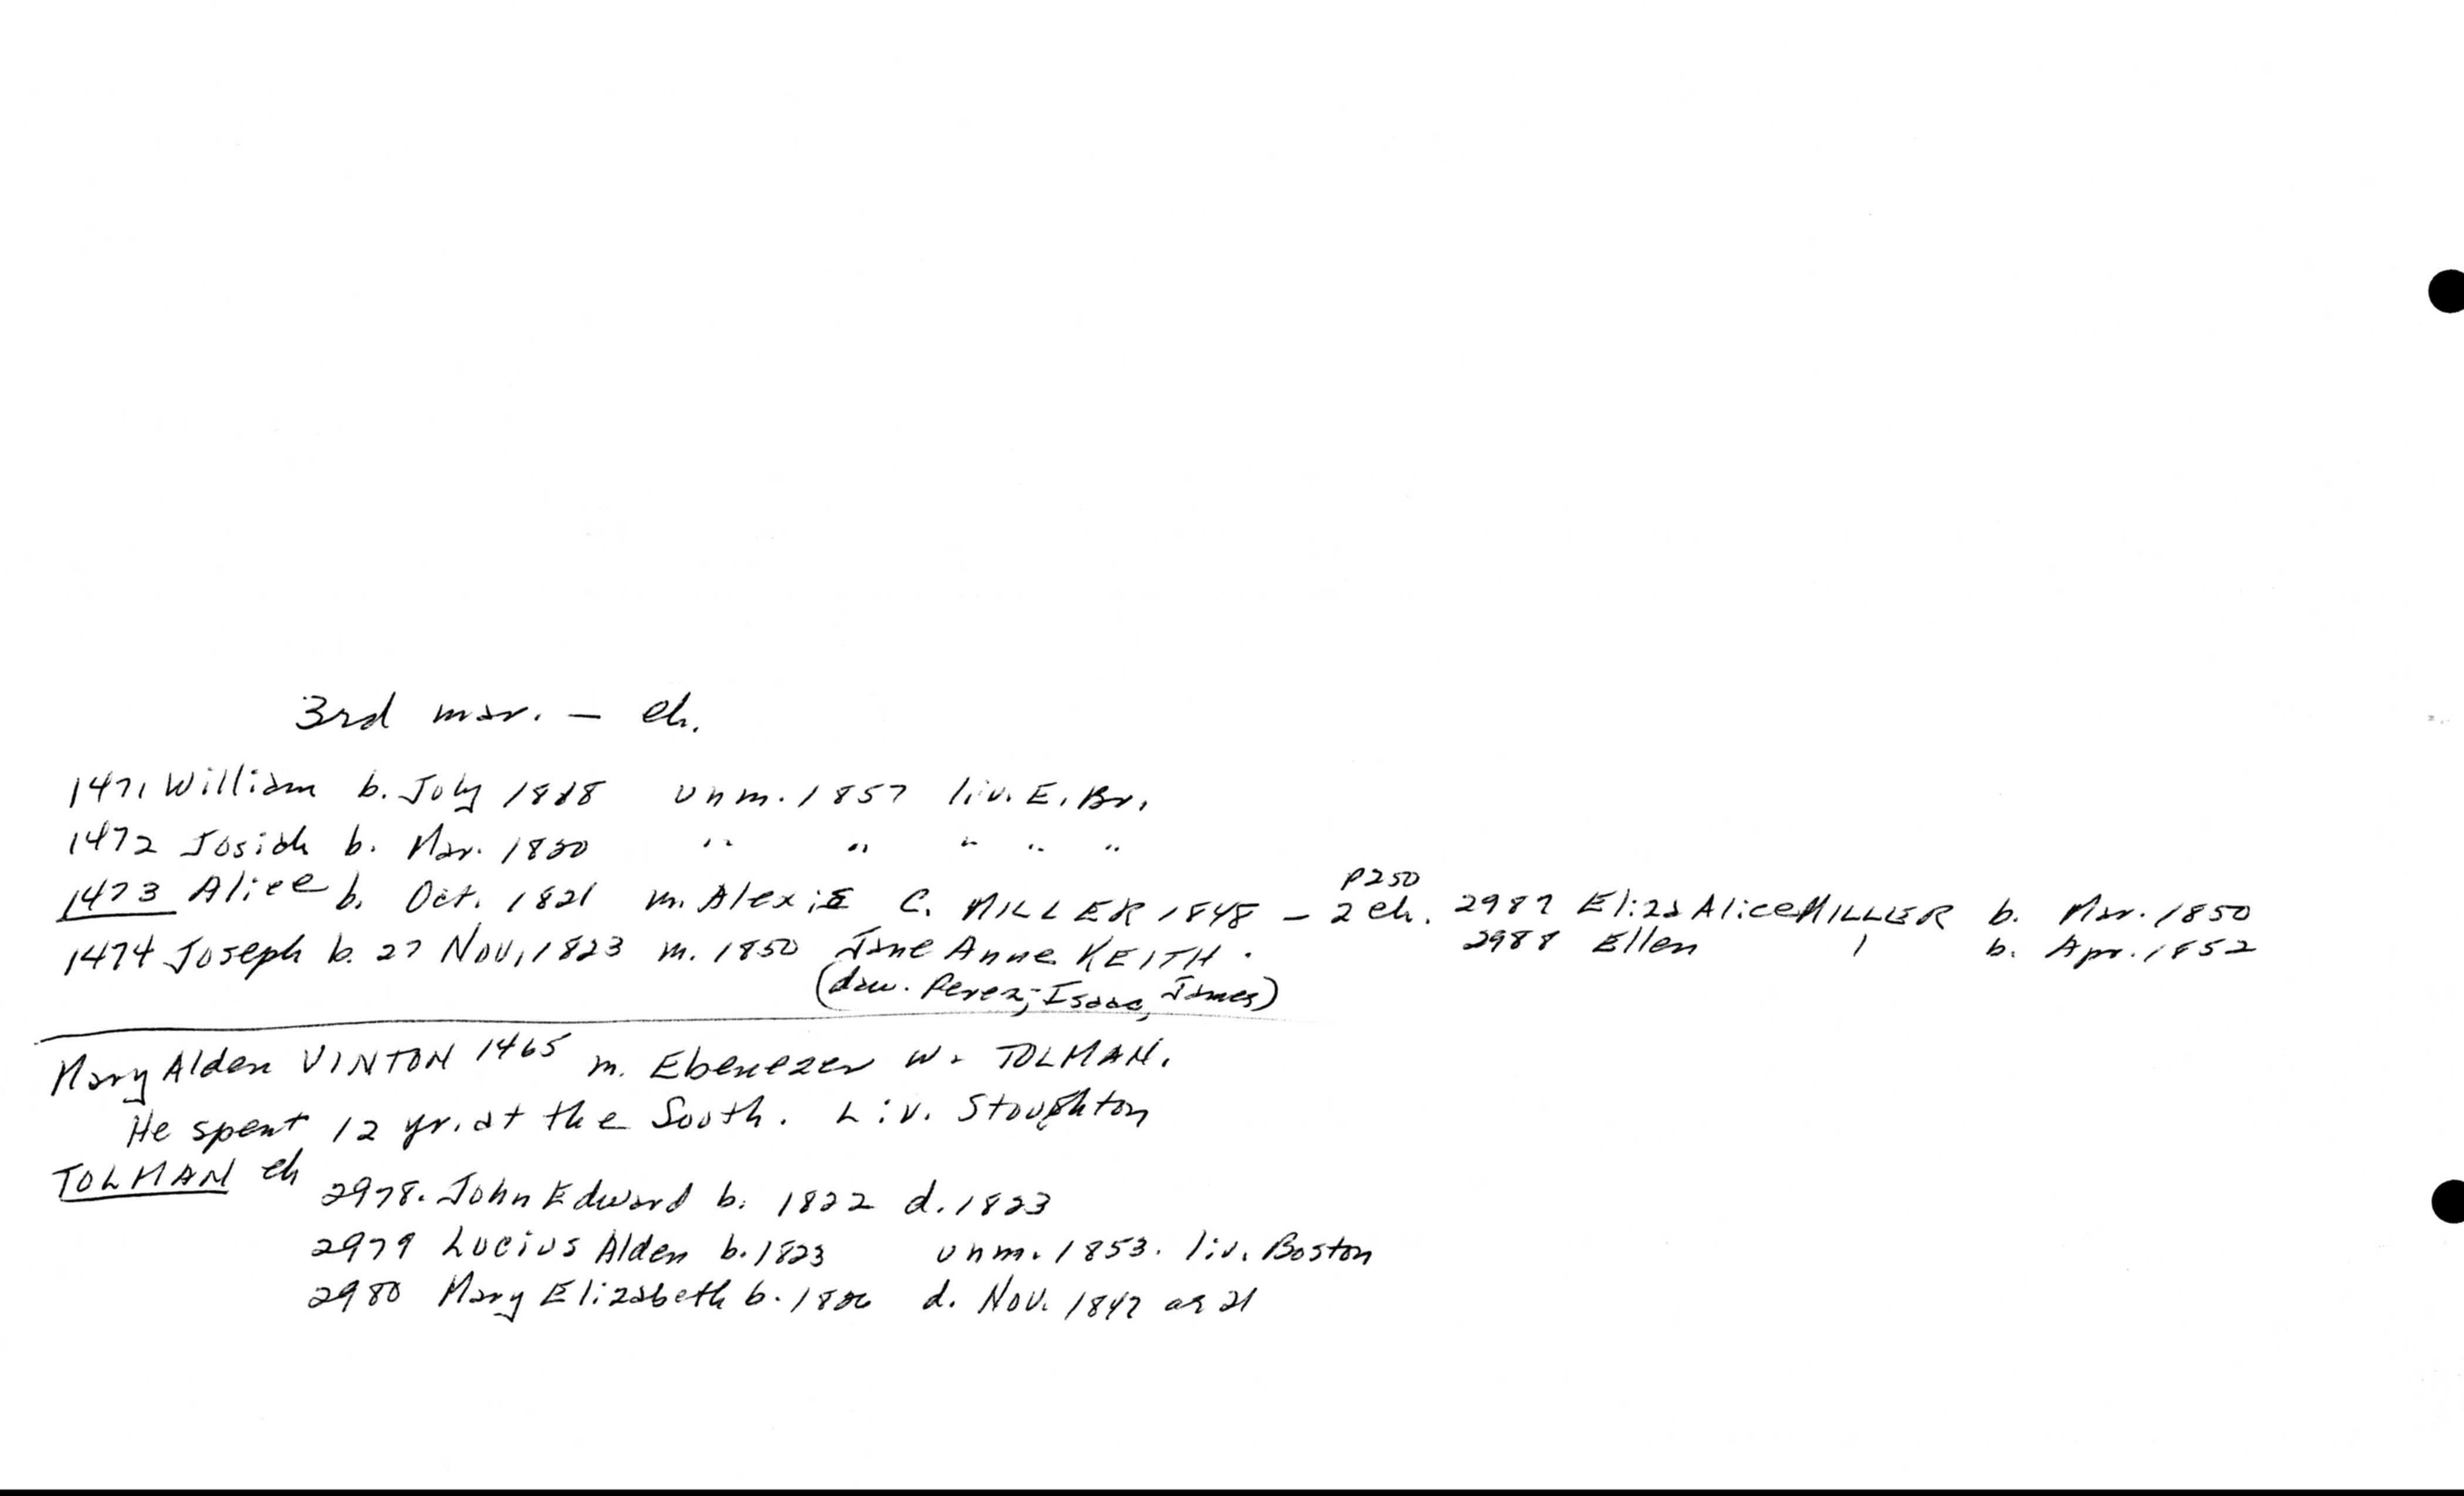 3rd mar. — ch.
1471 William b. July 1818 unm. 1857 liv. E. Br.
1472 Josiah b. Mar. 1820 " " " " "
1473 Alice b. Oct. 1821 m. Alexis C. MILLER 1848 – 2 ch. P250 2987 Eliza Alice MILLER b. Mar. 1850
2988 Ellen " b. Apr. 1852
1474 Joseph b. 27 Nov. 1823 m. 1850 Jane Anne KEITH.
(dau. Perez, Isaac, James)
Mary Alden VINTON 1465 m. Ebenezer W. TOLMAN.
He spent 12 yr. at the South. Liv. Stoughton
TOLMAN ch
2978. John Edward b. 1822 d. 1823
2979 Lucius Alden b. 1823 unm. 1853. liv. Boston
2980 Mary Elizabeth b. 1826 d. Nov. 1847 ae 21